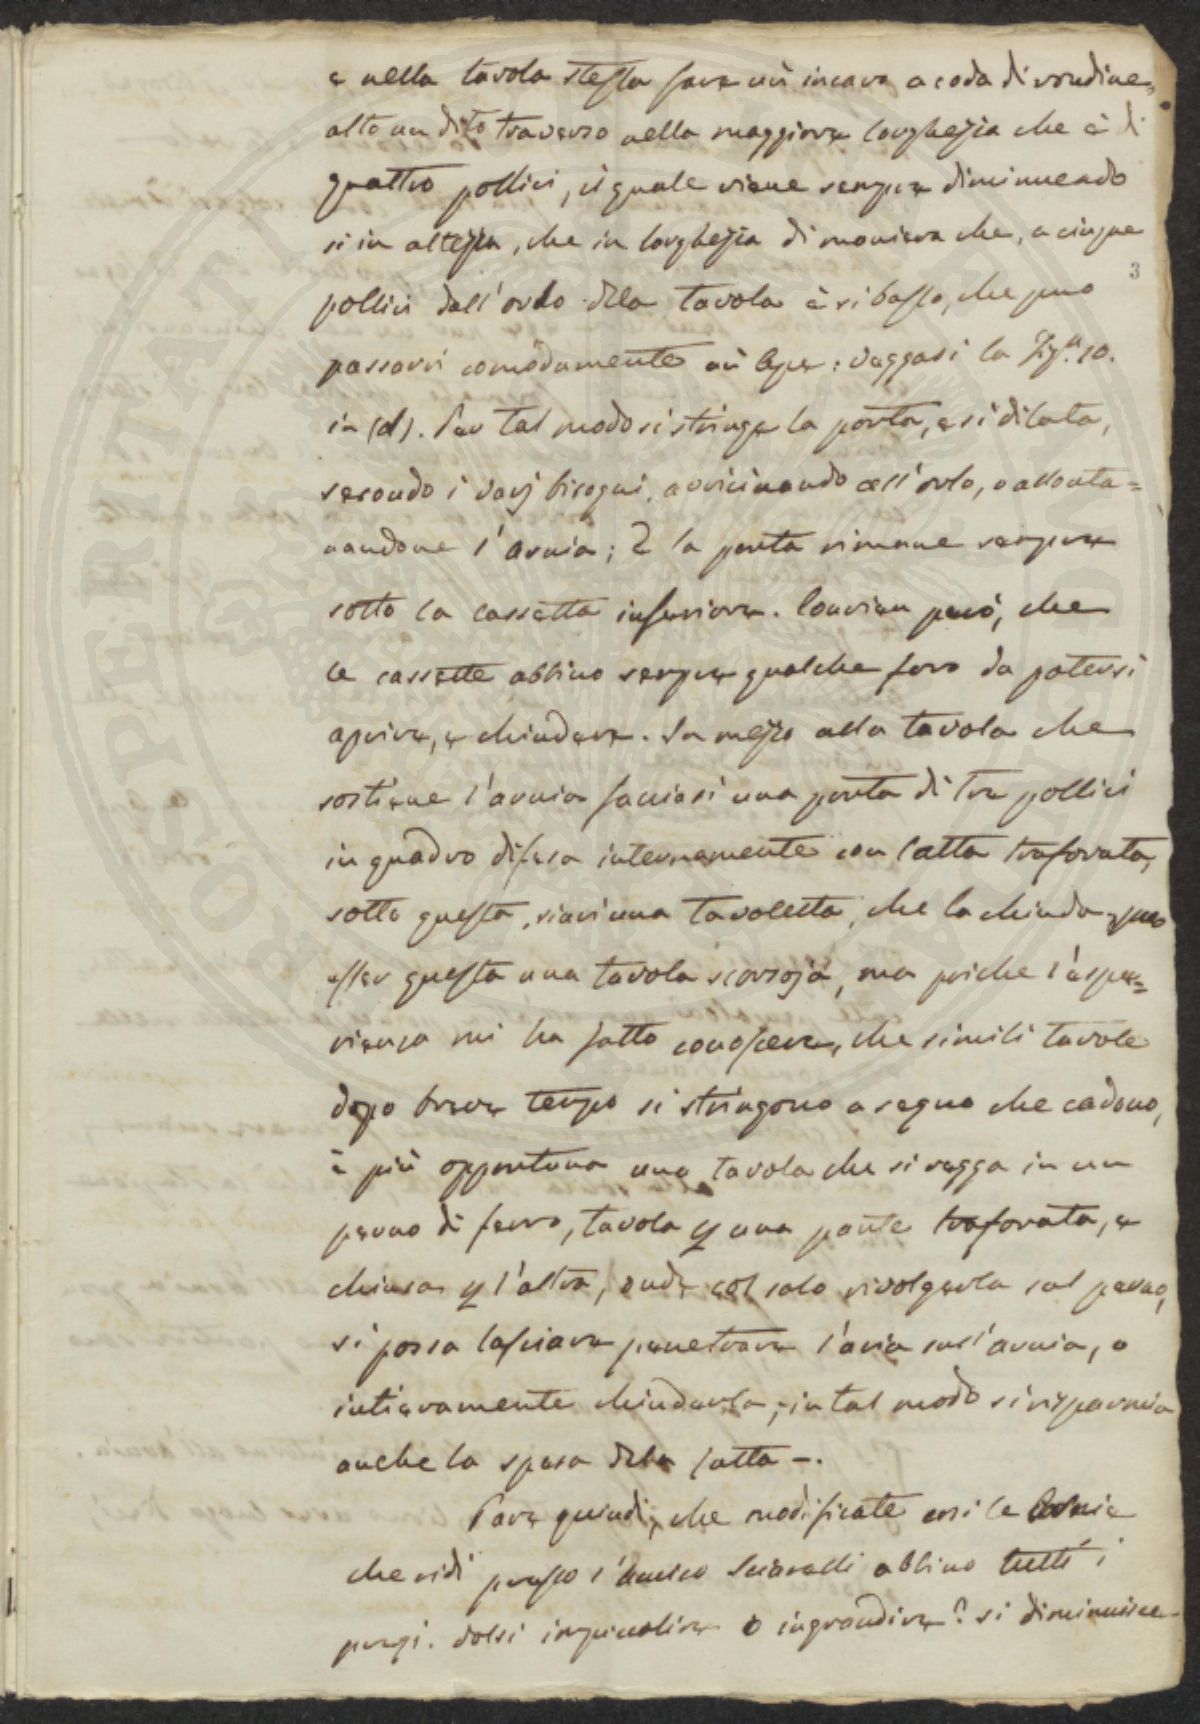 e nella tavola stessa fare un incavo a coda di rondine,
alto un dito traverso nella maggiore larghezza che è di
quattro pollici, il quale viene sempre diminuendo
si in altezza, che in larghezza di maniera che, a cinque
3
pollici dall'orlo della tavola è si basso, che può
passarvi comodamente un Ape: veggasi la Fig.a 10.
in (d). Per tal modo si stringe la porta, e si dilata,
secondo i varj bisogni, avvicinando all'orlo, o allonta=
nandone l'arnia; E la porta rimane sempre
sotto la cassetta inferiore. Convien però, che
le cassette abbino sempre qualche foro da potersi
aprire, e chiudere. In mezzo alla tavola che
sostiene l'arnia facciasi una porta di tre pollici
in quadro difesa internamente con latta traforata,
sotto questa, siavi una tavoletta, che la chiuda può
esser questa una tavola scorsoja, ma poiche l'espe=
rienza mi ha fatto conoscere, che simili tavole
dopo breve tempo si stringono a segno che cadono,
è più opportuna una tavola che si regga in un
perno di ferro, tavola p una parte traforata, e
chiusa p l'altra, onde col solo rivolgerla sul perno,
si possa lasciare penetrare l'aria nell'arnia, o
intieramente chiuderla; in tal modo si risparmia
anche la spesa della latta –.
Pare quindi, che modificate così le Arnie
che vidi presso l'Amico Sciaralli abbino tutti i
pregi. Volsi impicolire o ingrandire? si diminuisce
PROSPERITAT